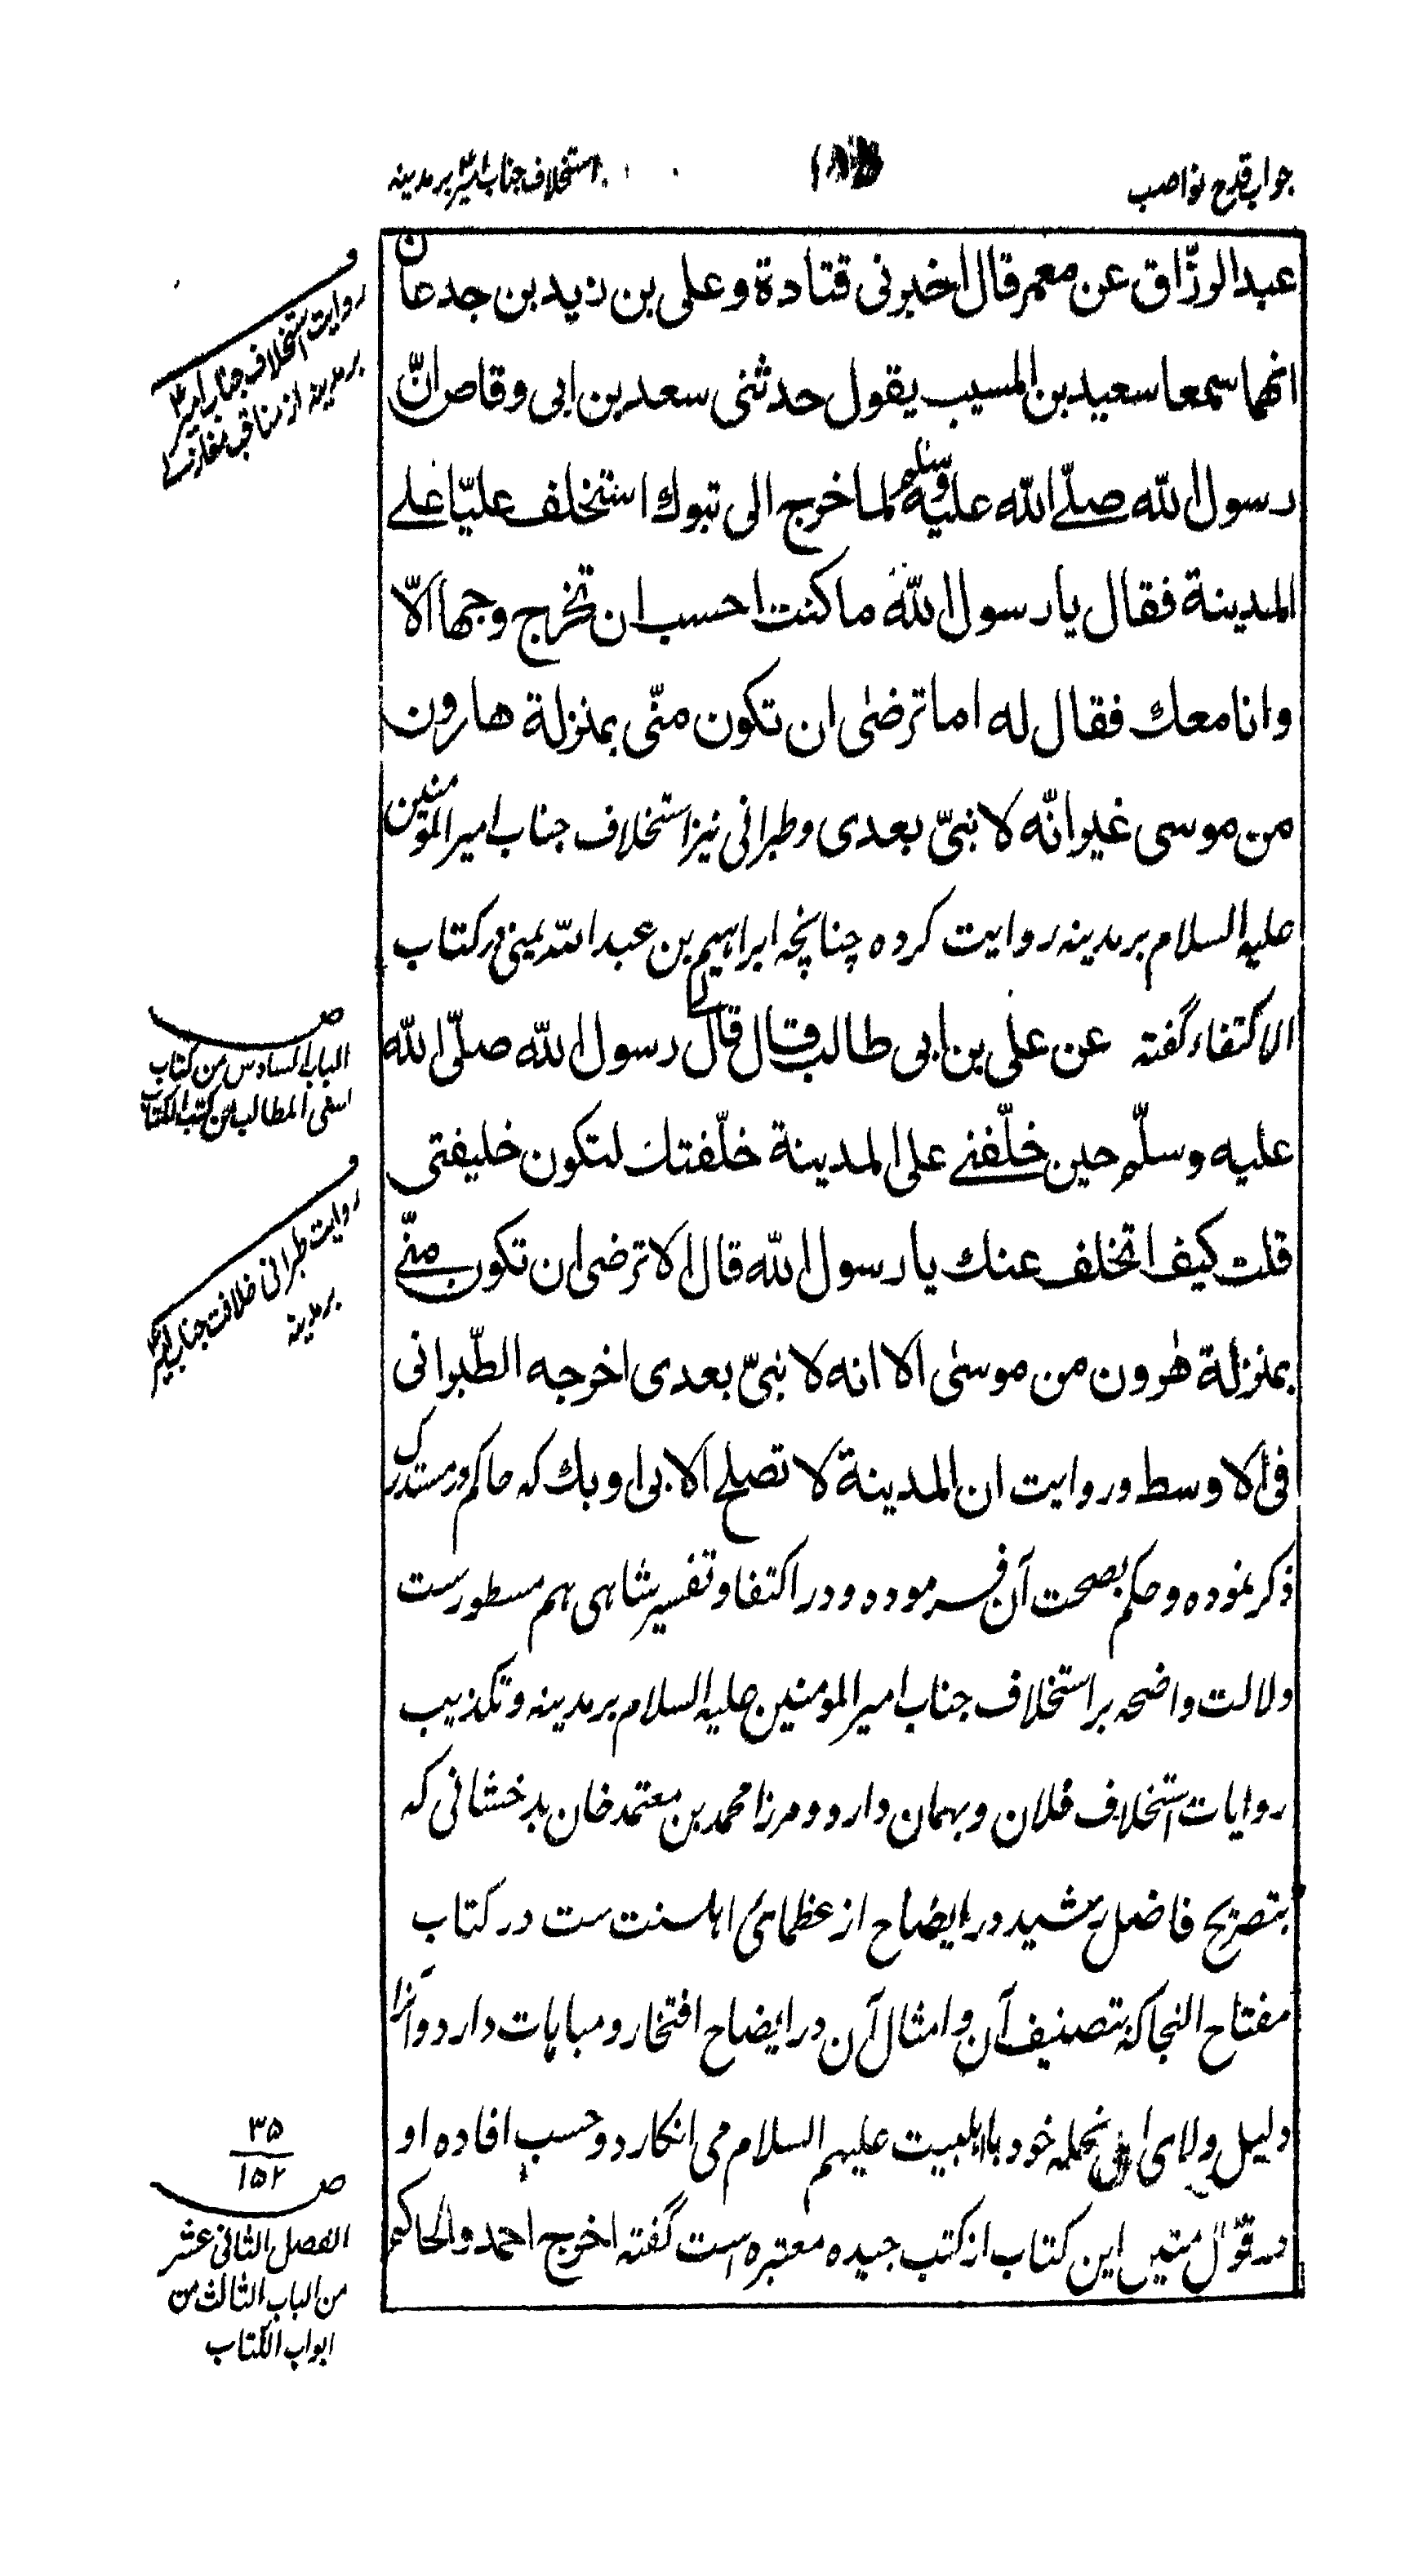 جواب قدح نواصب
استخلاف جناب امیر بر مدینه
عبد الرزّاق عن معمر قال اخبرنی قتادة و علی بن زید بن جدعان
انهما سمعا سعید بن المسیب یقول حدثنی سعد بن ابی وقاص انّ
رسول الله صلّی الله علیه وسلم لما خرج الی تبوك استخلف علیّا علی
المدینة فقال یا رسول الله ما کنت احسب ان تخرج وجها الّا
وانا معك فقال له اما ترضی ان تکون منّی بمنزلة هارون
من موسی غیر انّه لا نبیّ بعدی و طبرانی نیز استخلاف جناب امیر المؤمنین
علیه السلام بر مدینه روایت کرده چنانچه ابراهیم بن عبد الله یمنی در کتاب
الاکتفاء گفته عن علی بن ابی طالب قال قال رسول الله صلّی الله
علیه وسلّم حین خلّفنی علی المدینة خلّفتك لتکون خلیفتی
قلت کیف اتخلف عنك یا رسول الله قال الا ترضی ان تکون منّی
بمنزلة هٰرون من موسیٰ الا انه لا نبیّ بعدی اخرجه الطّبرانی
فی الاوسط و روایت ان المدینة لا تصلح الا بی او بك که حاکم در مستدرک
ذکر نموده و حکم بصحت آن فرموده و در اکتفا و تفسیر شاهی هم مسطورست
دلالت واضحه بر استخلاف جناب امیر المؤمنین علیه السلام بر مدینه و تکذیب
روایات استخلاف فلان و بهمان دارد و مرزا محمد بن معتمد خان بدخشانی که
بتصریح فاضل رشید در ایضاح از عظمای اهلسنت ست در کتاب
مفتاح النجا که بتصنیف آن و امثال آن در ایضاح افتخار و مباهات دارد و آنرا
دلیل ولای اهل نحله خود با اهلبیت علیهم السلام می انکارد و حسب افاده او
در قول متین این کتاب از کتب جیده معتبره است گفته اخرج احمد والحاکم
ف
روایت استخلاف جناب امیر
بر مدینه از مناقب مغازلی
ص
الباب السادس من کتاب
اسنی المطالب من کتب الکتاب
ف
روایت طبرانی خلافت جناب امیر
بر مدینه
۳۵
ص ۱۵۲
الفصل الثانی عشر
من الباب الثالث من
ابواب الکتاب